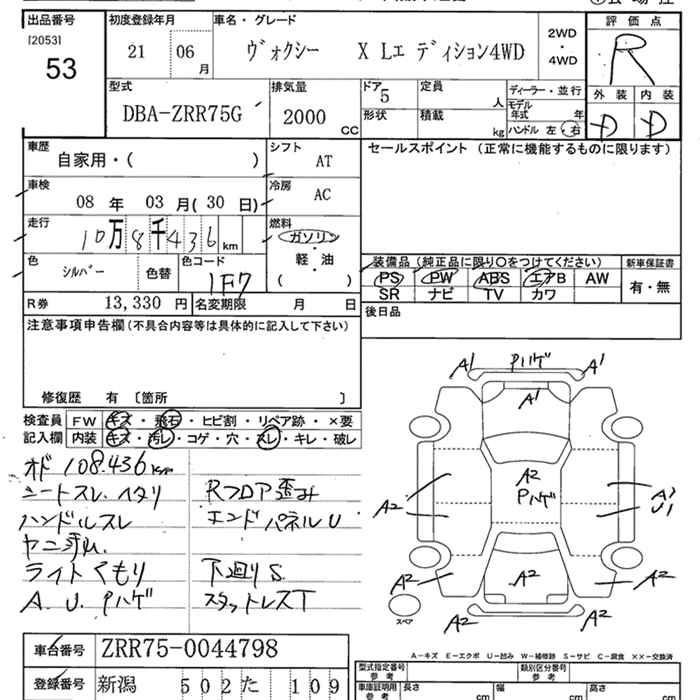 出品番号 初度登録年月 車名・グレード 評価点
[2053] 53 21 06 月 ヴォクシー X Lエディション4WD 2WD・4WD R
型式 排気量 ドア 定員 ディーラー・並行 外装 内装
DBA-ZRR75G 2000 CC 5 人 モデル年式 年 D D
形状 積載 kg ハンドル 左・右
車歴 自家用・( ) シフト AT セールスポイント (正常に機能するものに限ります)
車検 08年 03月(30日) 冷房 AC
走行 10万8千436 km 燃料 ガソリン
軽・油
( )
色 シルバー 色替 色コード 1F7 装備品 (純正品に限り○をつけてください) 新車保証書
PS PW ABS エアB AW 有・無
SR ナビ TV カワ
R券 13,330 円 名変期限 月 日 後日品
注意事項申告欄(不具合内容等は具体的に記入して下さい)
修復歴 有 〔箇所 〕
検査員 FW キズ・飛石・ヒビ割・リペア跡・×要
記入欄 内装 キズ・汚レ・コゲ・穴・スレ・キレ・破レ
オド 108.436km
シートスレ.ヘタリ Rフロア歪み
ハンドルスレ エンドパネルU
ヤニ汚れ
ライトくもり 下廻りS
A.U.Pハゲ スタットレスT
A1 Pハゲ A1
A1
A2
Pハゲ
A2 A1
U1
A2 A2 A2
A2 A2
スペア
A-キズ E-エクボ U-凹み W-補修跡 S-サビ C-腐食 XX-交換済
車台番号 ZRR75-0044798
登録番号 新潟 502 た 109
型式指定番号 参考 類別区分番号 参考
車庫証明用 参考 長さ cm 幅 cm 高さ cm